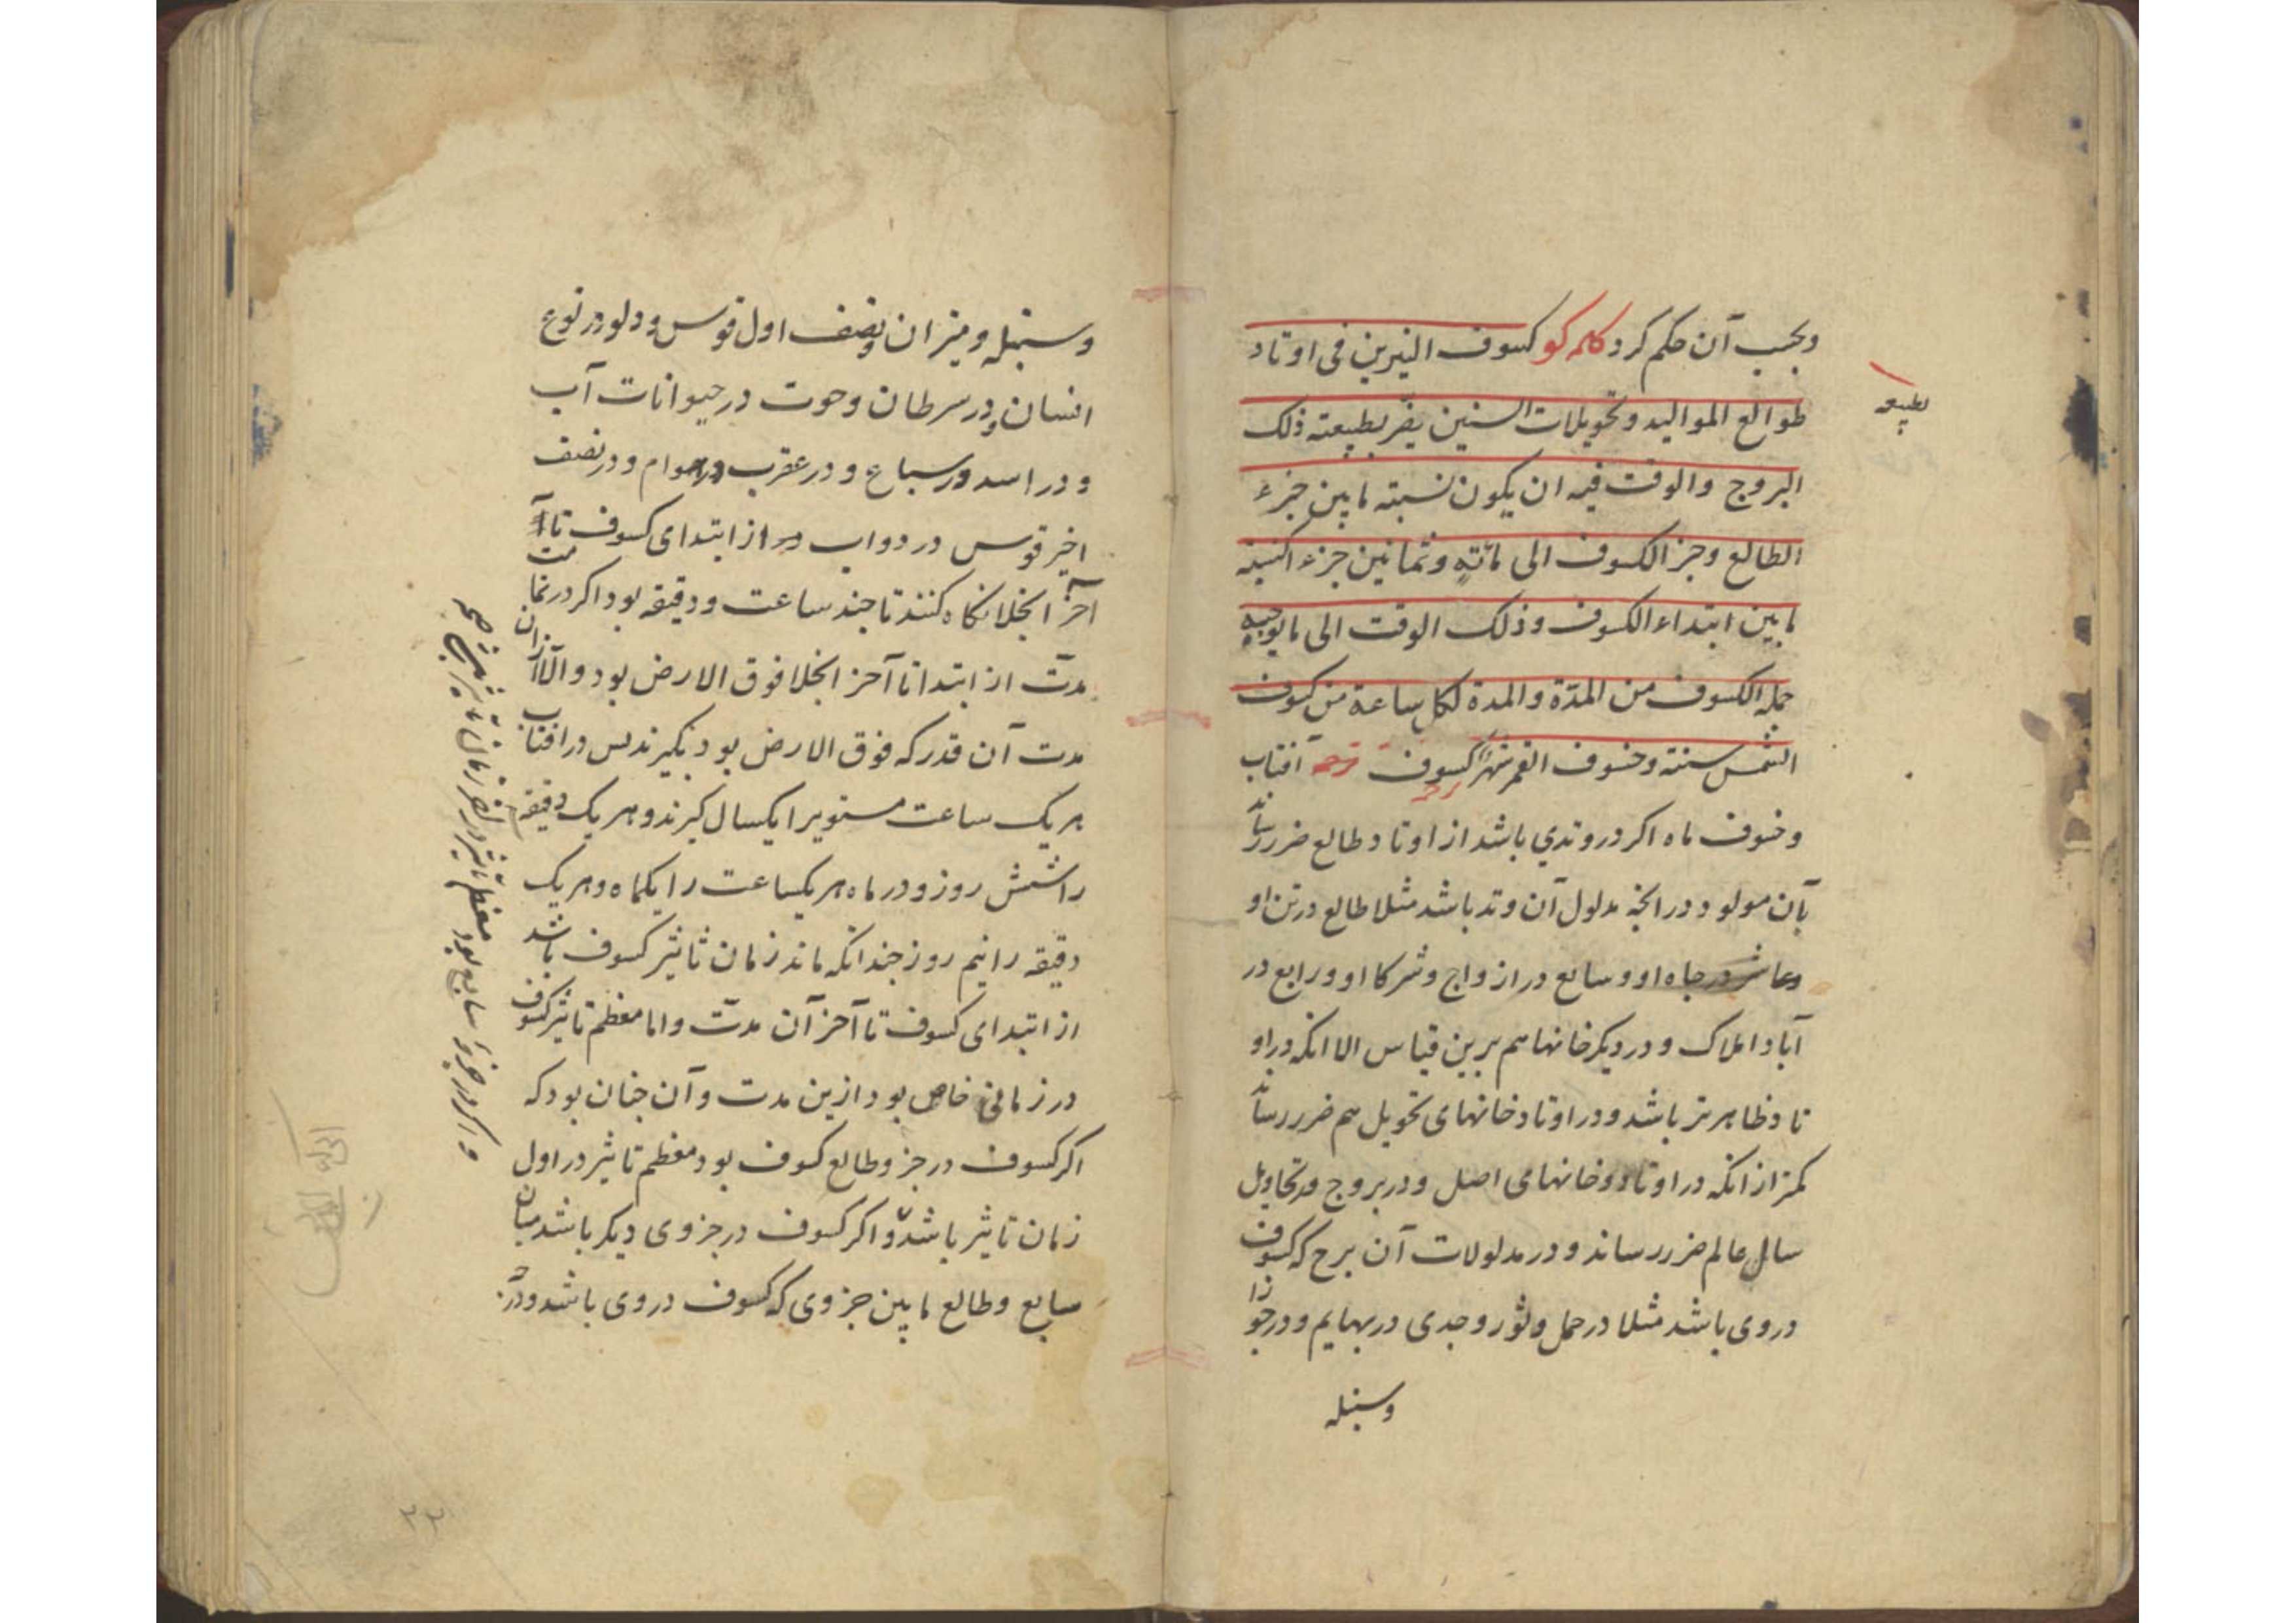 وبحسب آن حکم کرد کلمه کو کسوف النیرین فی اوتاد
طوالع الموالید وتحویلات السنین یضر بطبیعته ذلک
البروج والوقت فیه ان یکون نسبته مابین جزء
الطالع وجز الکسوف الی مائة وثمانین جزء کنسبة
مابین ابتداء الکسوف وذلک الوقت الی مایوجبه
جمله الکسوف من المدّة والمدة لکل ساعة من کسوف
الشمس سنته وخسوف القمر شهرًا کسوف آفتاب
وخسوف ماه اکر در وتدی باشد از اوتاد طالع ضرر رساند
بآن مولود در انچه مدلول آن وتد باشد مثلا طالع در تن او
وعاشر در جاه او وسابع در ازواج وشرکا او ورابع در
آبا واملاک و در دیکر خانها هم برین قیاس الا انکه در او
تاد ظاهرتر باشد ودر اوتاد خانهای تحویل هم ضرر رساند
کمتر از انکه در اوتاد وخانهای اصل ودر بروج وتحاویل
سال عالم ضرر رساند ودر مدلولات آن برج که کسوف
در وی باشد مثلا در حمل وثور وجدی در بهایم ودر جوزا
وسنبله
بطبیعه
وسنبله ومیزان ونصف اول قوس ودلو در نوع
انسان ودر سرطان وحوت در حیوانات آب
ودر اسد در سباع ودر عقرب در هوام ودر نصف
اخیر قوس در دواب و از ابتدای کسوف تا
آخر انجلا نکاه کنند تا چند ساعت ودقیقه بود اکر در تمامت
مدت از ابتدا تا آخر انجلا فوق الارض بود والا از ان
مدت آن قدر که فوق الارض بود بکیرند پس در افتاب
هر یک ساعت مستویرا یکسال کیرند وهر یک دقیقه
را شش روز ودر ماه هر یکساعت را یکماه وهر یک
دقیقه را نیم روز چندانکه ماند زمان تاثیر کسوف باشد
از ابتدای کسوف تا آخر آن مدت واما معظم تاثیر کسوف
در زمانی خاص بود ازین مدت وآن چنان بود که
اکر کسوف در جزو طالع کسوف بود معظم تاثیر در اول
زمان تاثیر باشد واکر کسوف در جزوی دیکر باشد میان
سابع وطالع مابین جزوی که کسوف در وی باشد ودر
واکر در جزو سابع بود معظم تاثیر در آخر زمان تاثیر
٢٢